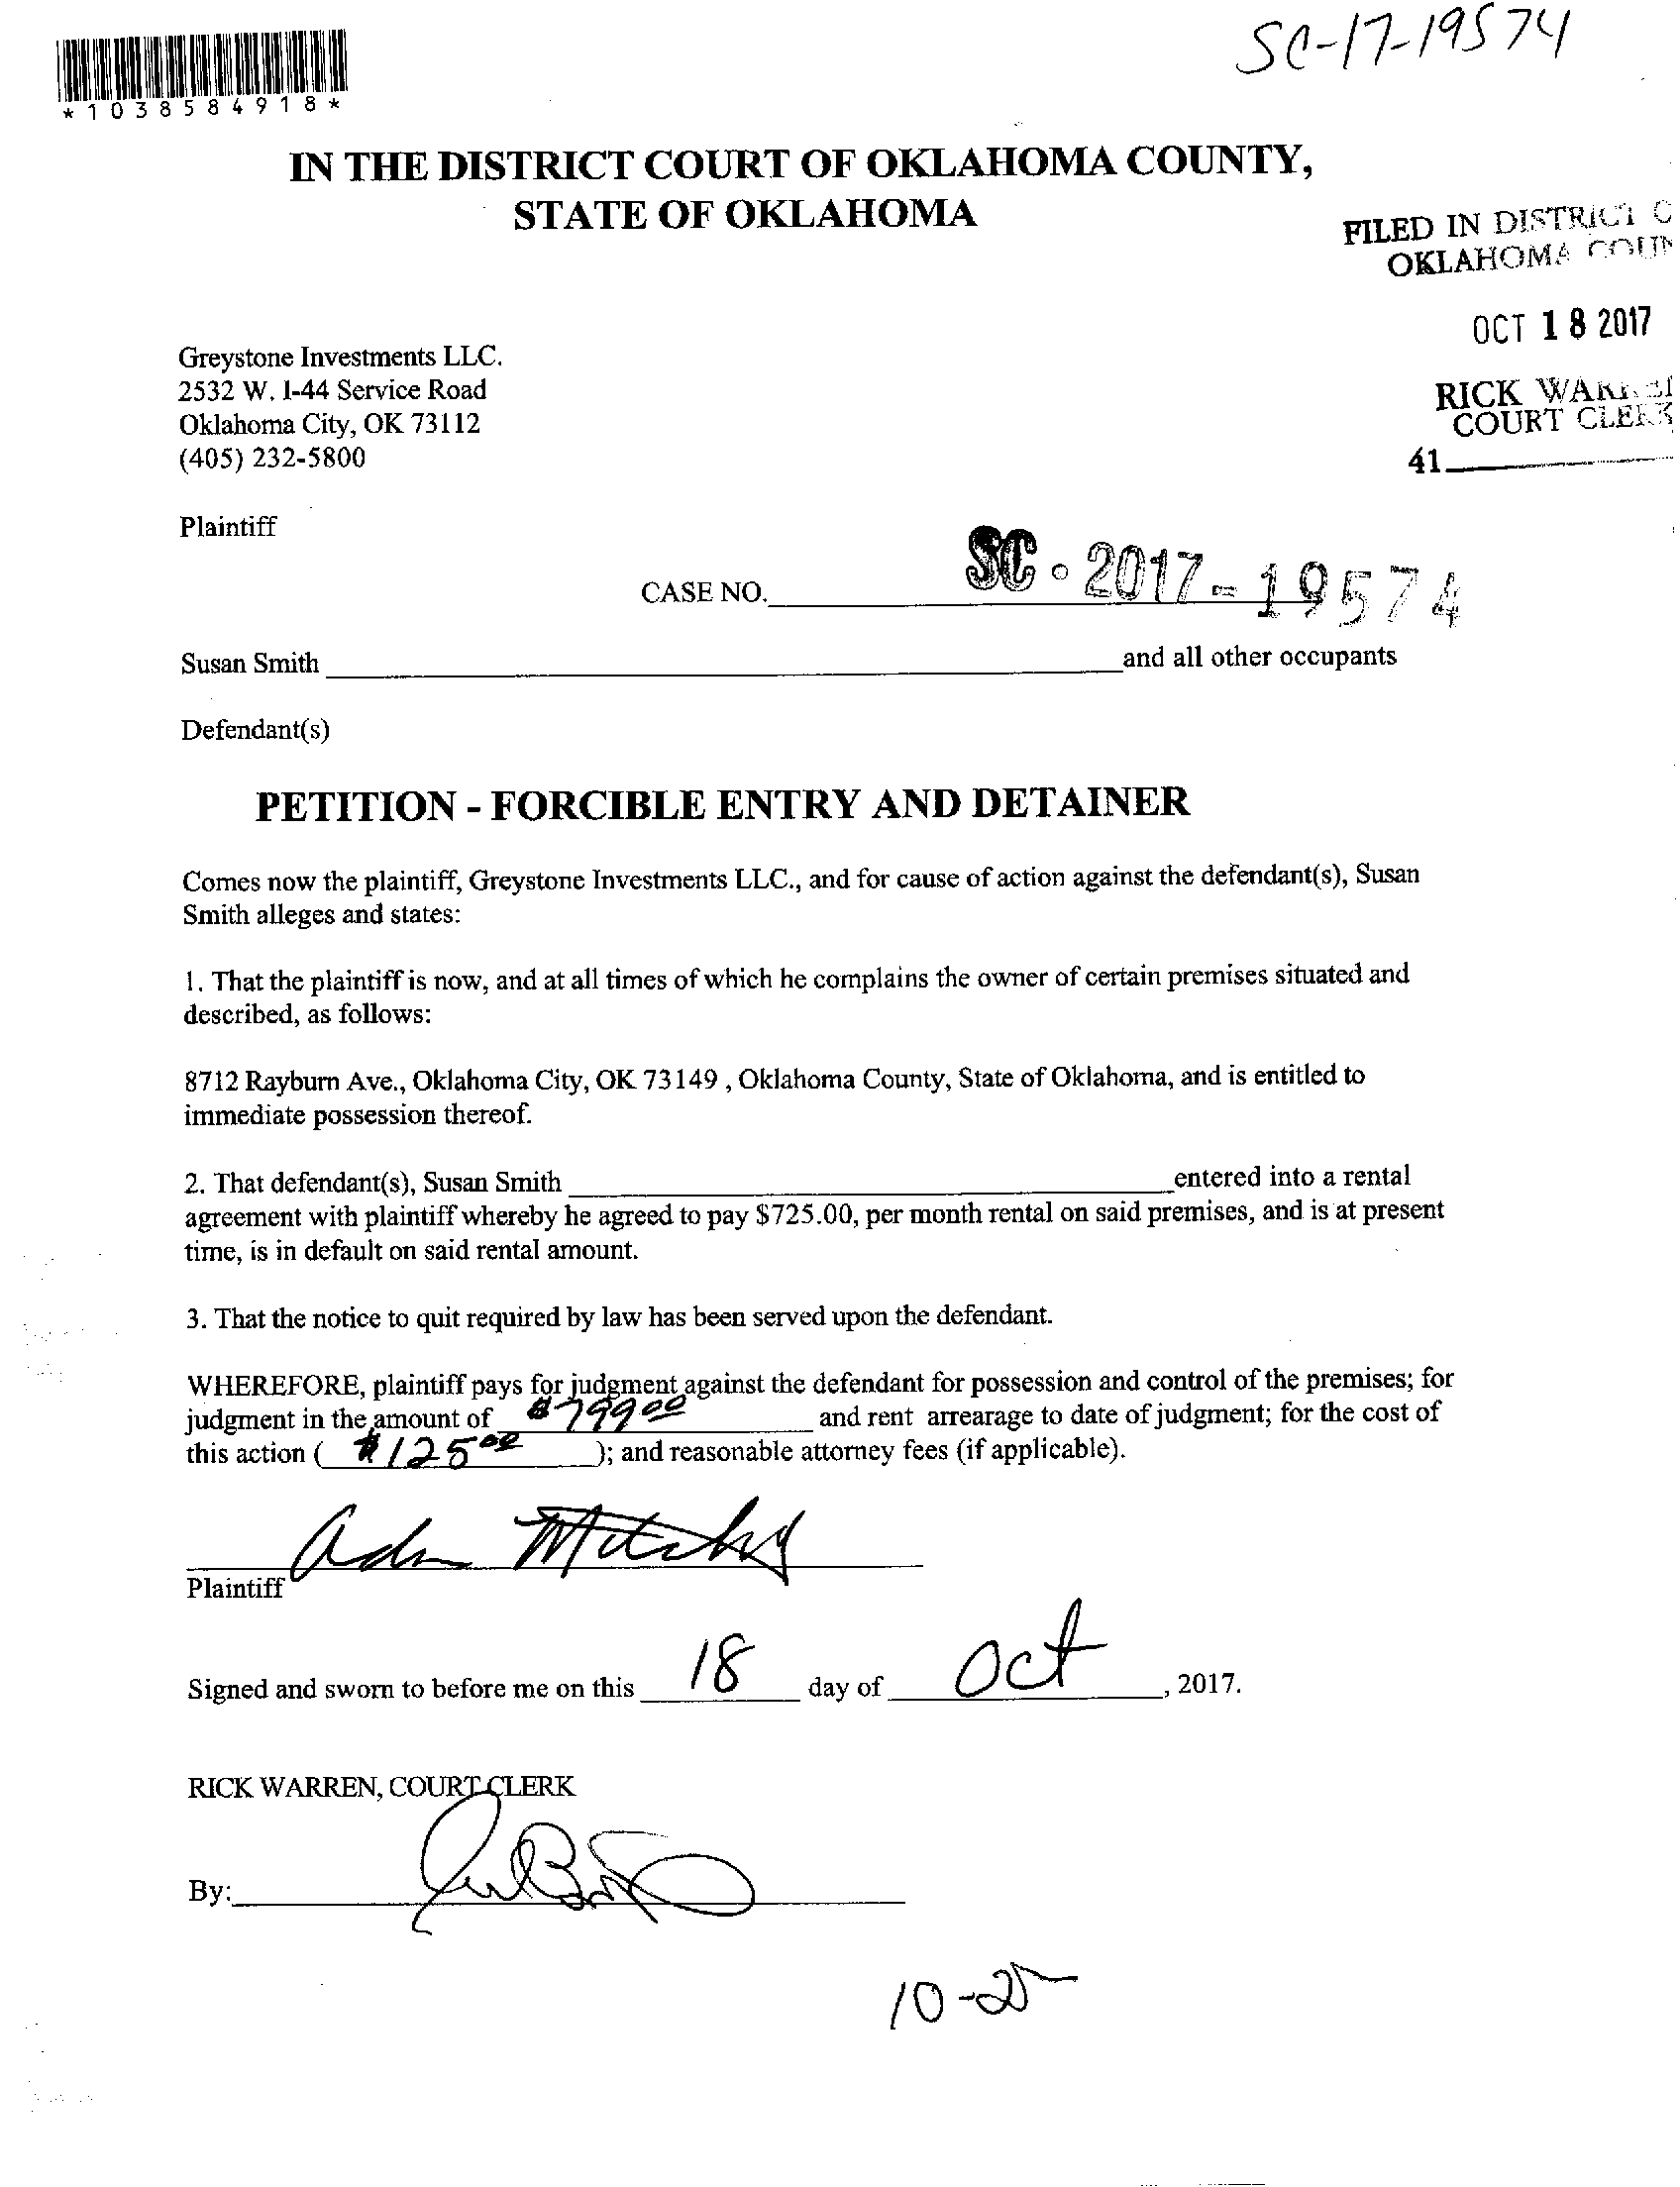 SC-17-19574
*1038584918*
IN THE DISTRICT COURT OF OKLAHOMA COUNTY,
STATE OF OKLAHOMA
FILED IN DISTRICT C
OKLAHOMA COUN
OCT 18 2017
Greystone Investments LLC.
2532 W. I-44 Service Road
Oklahoma City, OK 73112
(405) 232-5800
RICK WARREN
COURT CLERK
41
Plaintiff
CASE NO. SC-2017-19574
Susan Smith and all other occupants
Defendant(s)
PETITION - FORCIBLE ENTRY AND DETAINER
Comes now the plaintiff, Greystone Investments LLC., and for cause of action against the defendant(s), Susan
Smith alleges and states:
1. That the plaintiff is now, and at all times of which he complains the owner of certain premises situated and
described, as follows:
8712 Rayburn Ave., Oklahoma City, OK 73149 , Oklahoma County, State of Oklahoma, and is entitled to
immediate possession thereof.
2. That defendant(s), Susan Smith entered into a rental
agreement with plaintiff whereby he agreed to pay $725.00, per month rental on said premises, and is at present
time, is in default on said rental amount.
3. That the notice to quit required by law has been served upon the defendant.
WHEREFORE, plaintiff pays for judgment against the defendant for possession and control of the premises; for
judgment in the amount of $799.00 and rent arrearage to date of judgment; for the cost of
this action ( $125.00 ); and reasonable attorney fees (if applicable).
Plaintiff
Signed and sworn to before me on this 18 day of Oct , 2017.
RICK WARREN, COURT CLERK
By:
10-25